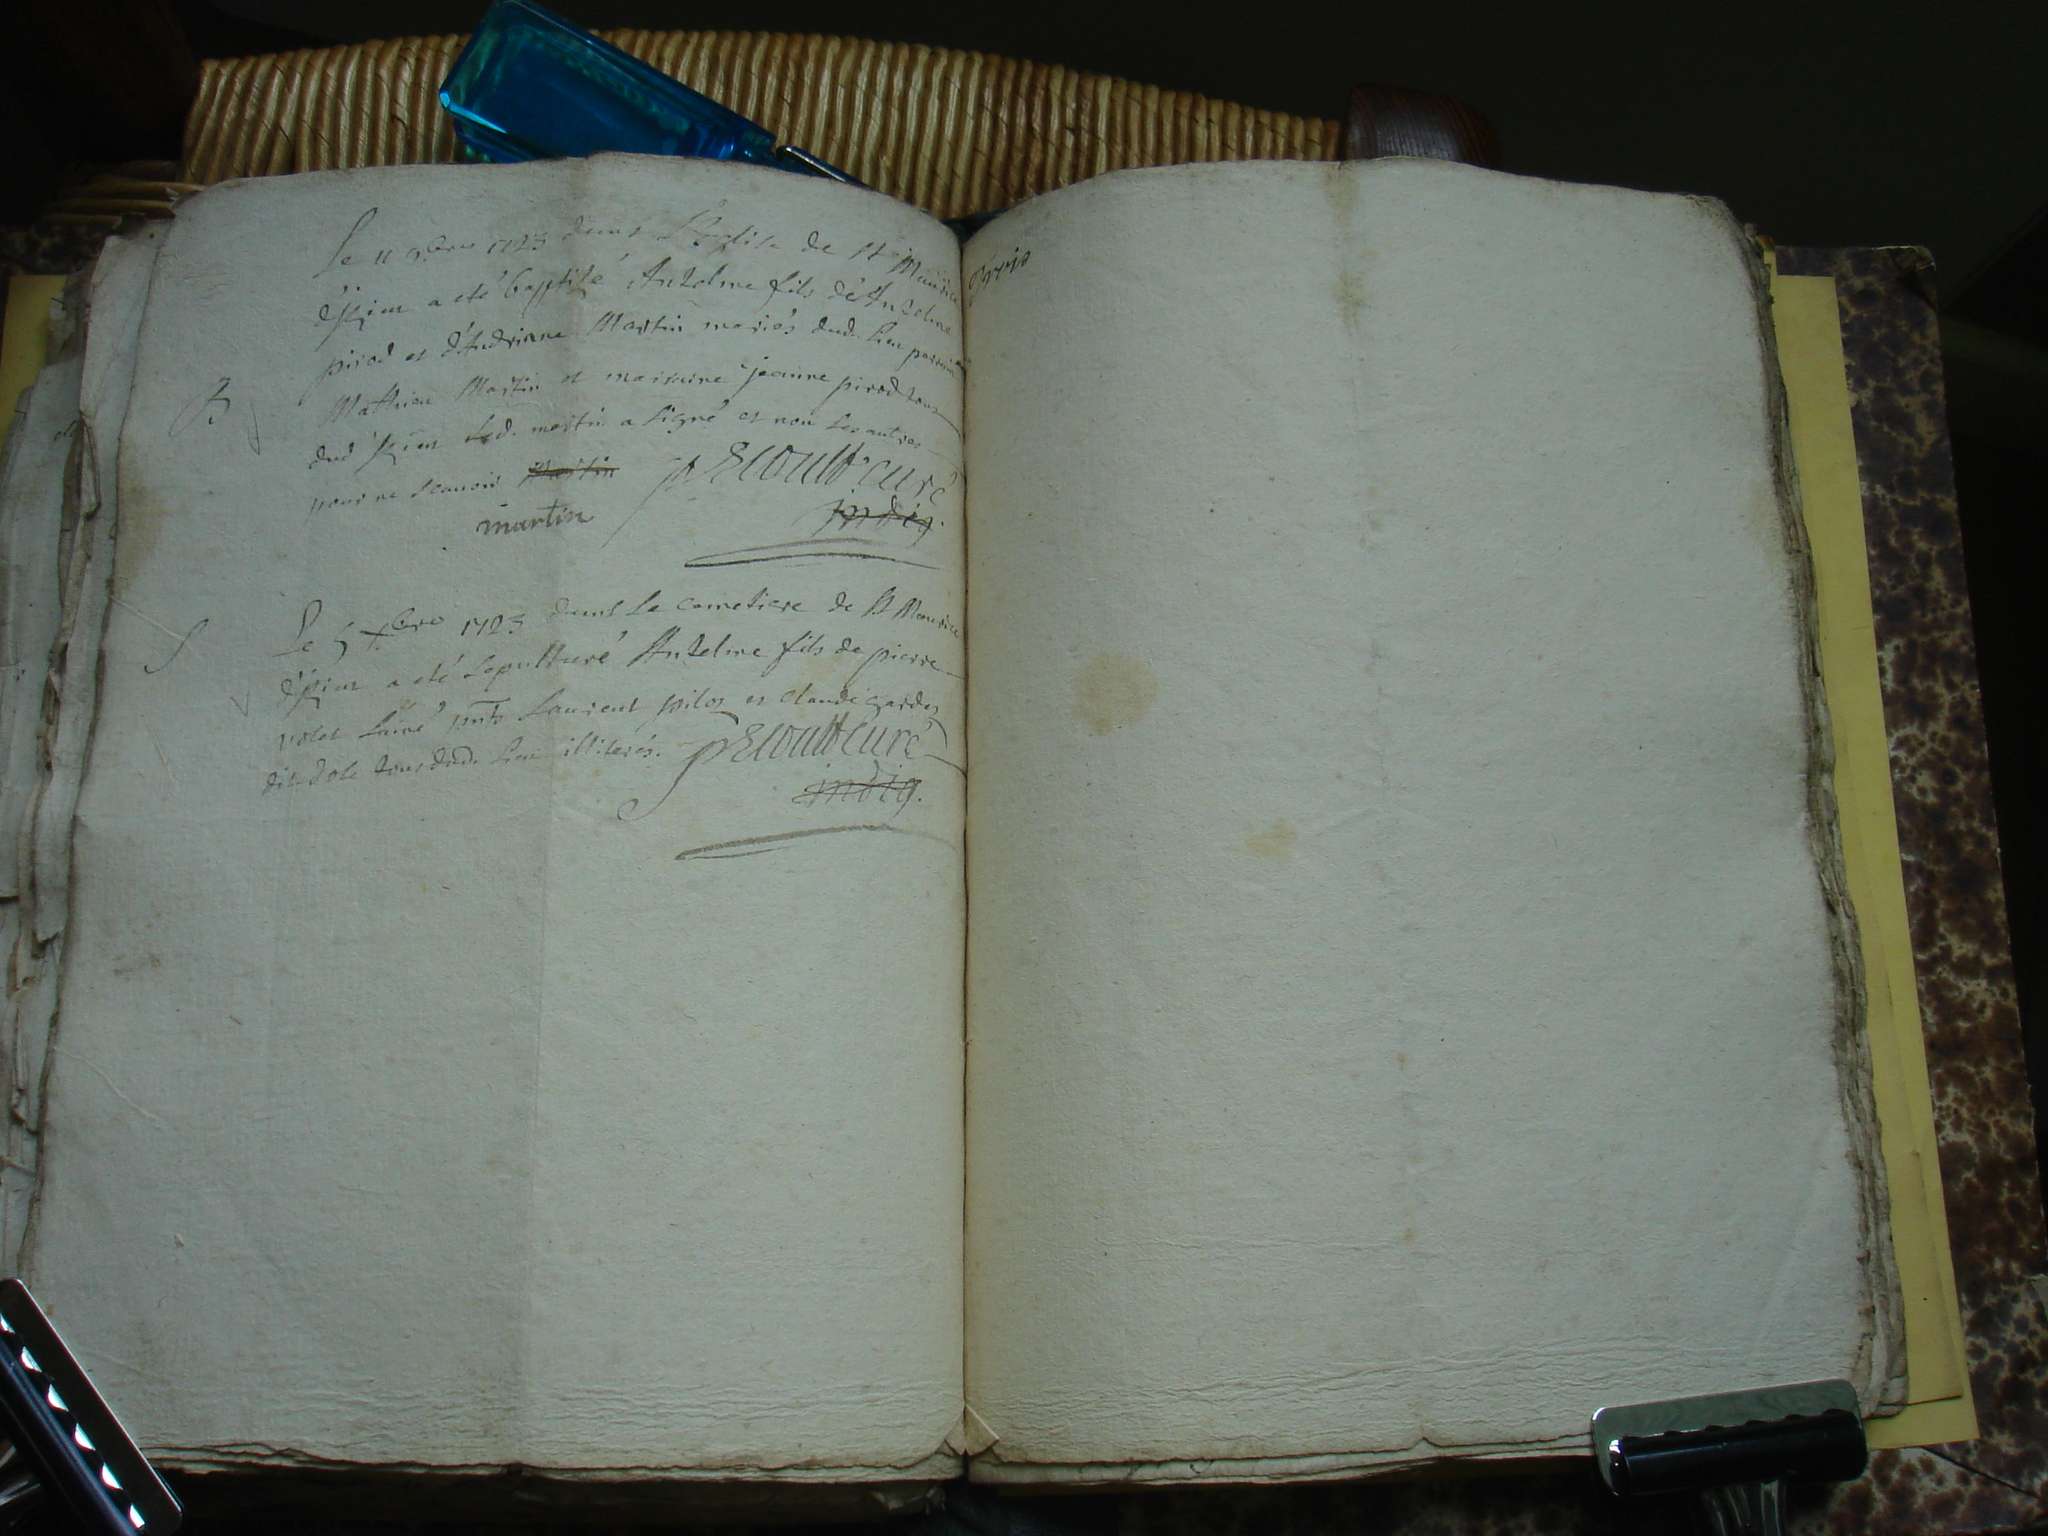 B
Le 11 9bre 1723 dans L'Eglise de St Maurice
a eté baptisé Anzelme fils de Anzelme
pirod et d'Andrienne Martin mariés dud. lieu parrain
Mathieu Martin et maraine jeanne pirod tous
dud Led. martin a signé et non les autres
pour ne scauoir Martin
martin curé
indig.
S
Le 5 Xbre 1723 dans Le cemetiere de St Maurice
a eté sepulturé Anzelme fils de pierre
Lainé pnts Laurent et claude
tous dud. lieu illiterés. curé
indig.